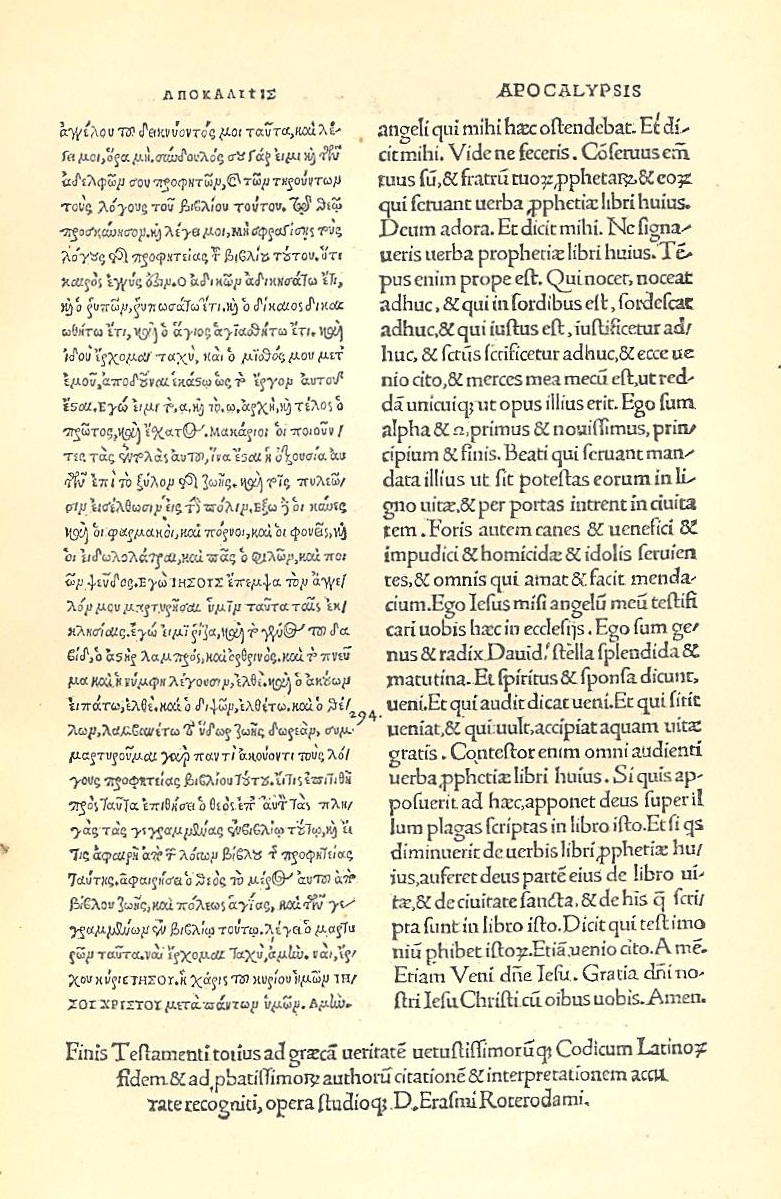 ΑΠΟΚΑΛΙΨΙΣ
ἀγγέλου τοῦ δεικνύοντός μοι ταῦτα, καὶ λέ-
γει μοι, ὅρα μή. σύνδουλός σου γάρ εἰμι καὶ τῶν
ἀδελφῶν σου προφητῶν, καὶ τῶν τηρούντων
τοὺς λόγους τοῦ βιβλίου τούτου. τῷ θεῷ
προσκύνησον. καὶ λέγει μοι, μὴ σφραγίσῃς τοὺς
λόγους τῆς προφητείας τοῦ βιβλίου τούτου. ὅτι
καιρὸς ἐγγύς ἐστιν. Ὁ ἀδικῶν ἀδικησάτω ἔτι,
καὶ ὁ ῥυπῶν, ῥυπωσάτω ἔτι, καὶ ὁ δίκαιος δικαι
ωθήτω ἔτι, καὶ ὁ ἅγιος ἁγιασθήτω ἔτι. καὶ
ἰδοὺ ἔρχομαι ταχὺ, καὶ ὁ μισθός μου μετ
ἐμοῦ, ἀποδοῦναι ἑκάστῳ ὡς τὸ ἔργον αὐτοῦ
ἔσται. Ἐγώ εἰμι τὸ α, καὶ τὸ ω, ἀρχὴ, καὶ τέλος ὁ
πρῶτος, καὶ ἔσχατος. Μακάριοι οἱ ποιοῦν/
τες τὰς ἐντολὰς αὐτοῦ, ἵνα ἔσται ἡ ἐξουσία αὐ
τῶν ἐπὶ τὸ ξύλον τῆς ζωῆς. καὶ τοῖς πυλεῶ/
σιν εἰσέλθωσιν εἰς τὴν πόλιν, ἔξω δὲ οἱ κύνες
καὶ οἱ φαρμακοὶ, καὶ πόρνοι, καὶ οἱ φονεῖς, καὶ
οἱ εἰδωλολάτραι, καὶ πᾶς ὁ φιλῶν, καὶ ποι
ῶν ψεῦδος. Ἐγὼ ΙΗΣΟΥΣ ἔπεμψα τὸν ἄγγε/
λόν μου μαρτυρῆσαι ὑμῖν ταῦτα ταῖς ἐκ/
κλησίαις. ἐγώ εἰμι ἡ ῥίζα, καὶ τὸ γένος τοῦ δα
βίδ, ὁ ἀστὴρ λαμπρὸς, καὶ ὀρθρινὸς. καὶ τὸ πνεῦ
μα καὶ ἡ νύμφη λέγουσιν, ἐλθὲ. καὶ ὁ ἀκούων
εἰπάτω, ἐλθέ. καὶ ὁ διψῶν, ἐλθέτω. καὶ ὁ θέ/
λων, λαμβανέτω τὸ ὕδωρ ζωῆς δωρεὰν, συμ-
μαρτυροῦμαι γὰρ παντὶ ἀκούοντι τοὺς λό/
γους προφητείας βιβλίου τούτου. εἴ τις ἐπιτιθῇ
πρὸς ταῦτα ἐπιθήσει ὁ θεὸς ἐπ' αὐτὸν τὰς πλη/
γὰς τὰς γεγραμμένας ἐν βιβλίῳ τούτῳ, καὶ εἴ
τις ἀφαιρῇ ἀπὸ τῶν λόγων βίβλου τῆς προφητείας
ταύτης. ἀφαιρήσει ὁ θεὸς τὸ μέρος αὐτοῦ ἀπὸ
βίβλου ζωῆς, καὶ πόλεως ἁγίας, καὶ τῶν γε/
γραμμένων ἐν βιβλίῳ τούτῳ. λέγει ὁ μαρτυ
ρῶν ταῦτα. ναὶ ἔρχομαι ταχὺ, ἀμήν. ναὶ, ἔρ/
χου κύριε ΙΗΣΟΥ. ἡ χάρις τοῦ κυρίου ἡμῶν ΙΗ/
ΣΟΥ ΧΡΙΣΤΟΥ μετὰ πάντων ὑμῶν. Ἀμήν.
294.
APOCALYPSIS
angeli qui mihi hæc ostendebat. Et di-
cit mihi. Vide ne feceris. Cōseruus em̄
tuus sū, & fratrū tuoꝝ ꝓphetaꝝ, & eoꝝ
qui seruant uerba ꝓphetiæ libri huius.
Deum adora. Et dicit mihi. Ne signa-
ueris uerba prophetiæ libri huius. Tē-
pus enim prope est. Qui nocet, noceat
adhuc, & qui in sordibus est, sordescat
adhuc, & qui iustus est, iustificetur ad/
huc, & sctūs scrificetur adhuc, & ecce ue
nio cito, & merces mea mecū est, ut red-
dā unicuiqꝫ ut opus illius erit. Ego sum
alpha & ω, primus & nouissimus, prin/
cipium & finis. Beati qui seruant man-
data illius ut sit potestas eorum in li-
gno uitæ, & per portas intrent in ciuita
tem. Foris autem canes & uenefici &
impudici & homicidæ & idolis seruien
tes, & omnis qui amat & facit menda-
cium. Ego Iesus misi angelū meū testifi
cari uobis hæc in ecclesijs. Ego sum ge/
nus & radix Dauid, stella splendida &
matutina. Et spiritus & sponsa dicunt,
ueni. Et qui audit dicat ueni. Et qui sitit
ueniat, & qui uult, accipiat aquam uitæ
gratis. Contestor enim omni audienti
uerba ꝓphetiæ libri huius. Si quis ap-
posuerit ad hæc, apponet deus super il
lum plagas scriptas in libro isto. Et si qs
diminuerit de uerbis libri ꝓphetiæ hu/
ius, auferet deus partē eius de libro ui-
tæ, & de ciuitate sancta, & de his q̄ scri/
pta sunt in libro isto. Dicit qui testimo
niū phibet istoꝝ. Etiā uenio cito. A mē.
Etiam Veni dn̄e Iesu. Gratia dn̄i no-
stri Iesu Christi cū oībus uobis. Amen.
Finis Testamenti totius ad græcā ueritatē uetustissimorūqꝫ Codicum Latinoꝝ
fidem & ad ꝓbatissimoꝝ authorū citationē & interpretationem accu
rate recogniti, opera studioqꝫ D. Erasmi Roterodami.